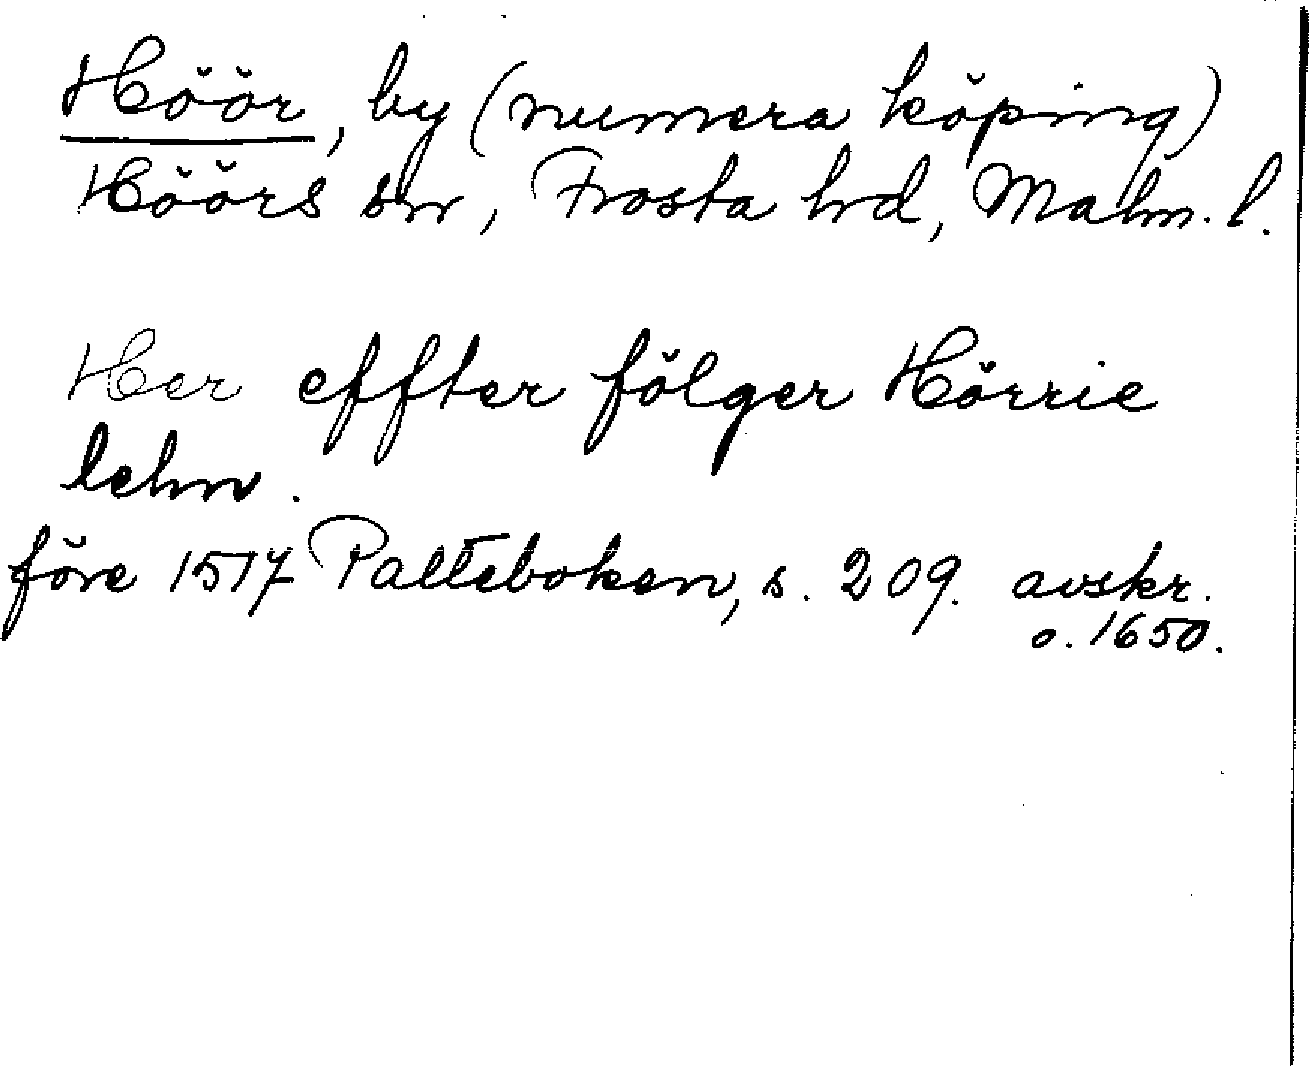 Höör, by (numera köping)
Höörs sn, Frosta hd, Malm. l.
Her effter fölger Hörrie
lehn.
före 1517 Palteboken, s. 209. avskr.
o. 1650.